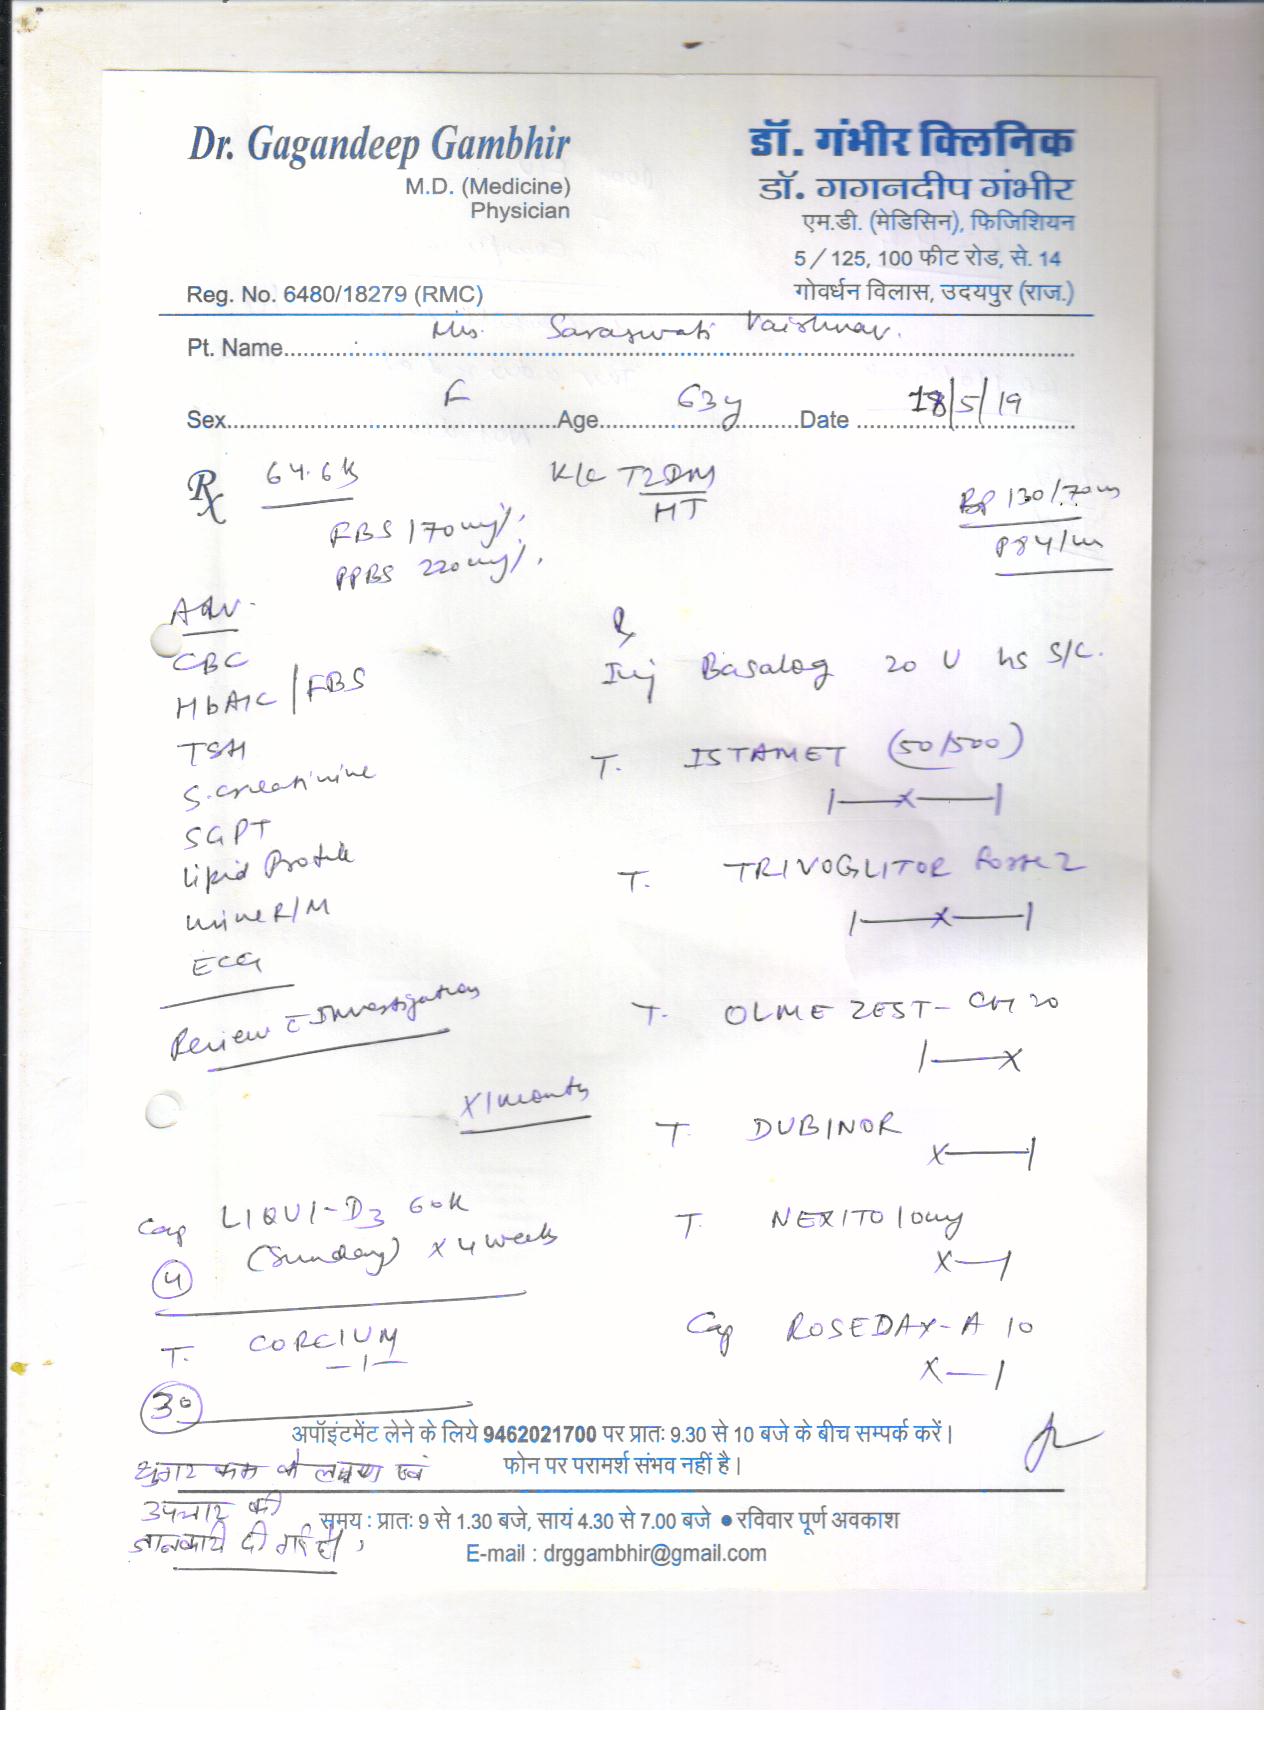 Dr. Gagandeep Gambhir
M.D. (Medicine)
Physician
Reg. No. 6480/18279 (RMC)
डॉ. गंभीर क्लिनिक
डॉ. गगनदीप गंभीर
एम.डी. (मेडिसिन), फिजिशियन
5 / 125, 100 फीट रोड, से. 14
गोवर्धन विलास, उदयपुर (राज.)
Pt. Name Mrs. Saraswati Vaishnav.
Sex F Age 63y Date 18/5/19
Rx 64.6k K/c T2DM BP 130/70
HT
FBS 170mg%. P84/m
PPBS 220mg%.
Adv.
CBC
HbA1C / FBS
TSH
S. creatinine
SGPT
Lipid Profile
urine R/M
ECG
Review c Investigation
x 1 month
Rx
Inj Basalog 20 U hs S/C.
T. ISTAMET (50/500)
|—x—|
T. TRIVOGLITOR 2
|—x—|
T. OLMEZEST-CH 20
|—x
T. DUBINOR
x—|
T. NEXITO 10mg
x—|
Cap ROSEDAY-A 10
x—|
Cap LIQUI-D3 60K
(Sunday) x 4 weeks
4
T. CORCIUM
—|—
30
अपॉइंटमेंट लेने के लिये 9462021700 पर प्रातः 9.30 से 10 बजे के बीच सम्पर्क करें।
फोन पर परामर्श संभव नहीं है।
शुगर कम के लक्षण एवं
उपचार की
जानकारी दी गई है।
समय : प्रातः 9 से 1.30 बजे, सायं 4.30 से 7.00 बजे ● रविवार पूर्ण अवकाश
E-mail : drggambhir@gmail.com